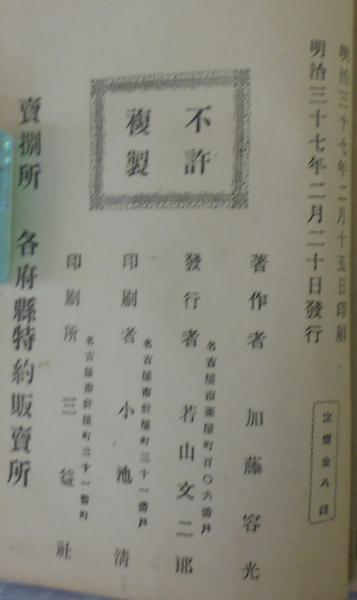 明治三十七年二月十五日印刷
明治三十七年二月二十日發行
定價金八錢
不許
複製
著作者 加藤容光
名古屋市葉屋町百〇六番戶
發行者 若山文二郎
名古屋市針屋町三十一番戶
印刷者 小池清
名古屋市針屋町三十一番町
印刷所 三益社
賣捌所 各府縣特約販賣所